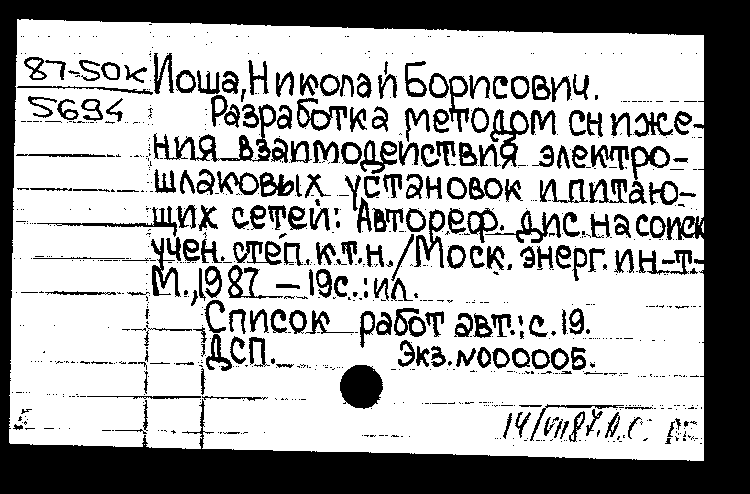 87-50к Иоша, Николай Борисович.
5694 Разработка методом сниже-
ния взаимодействия электро-
шлаковых установок и питаю-
щих сетей: Автореф. дис. на соиск
учен. степ. к.т.н. / Моск. энерг. ин-т.-
М., 1987 – 19с.: ил.
Список работ авт.: с. 19.
ДСП. Экз. N000005.
14/VII87.